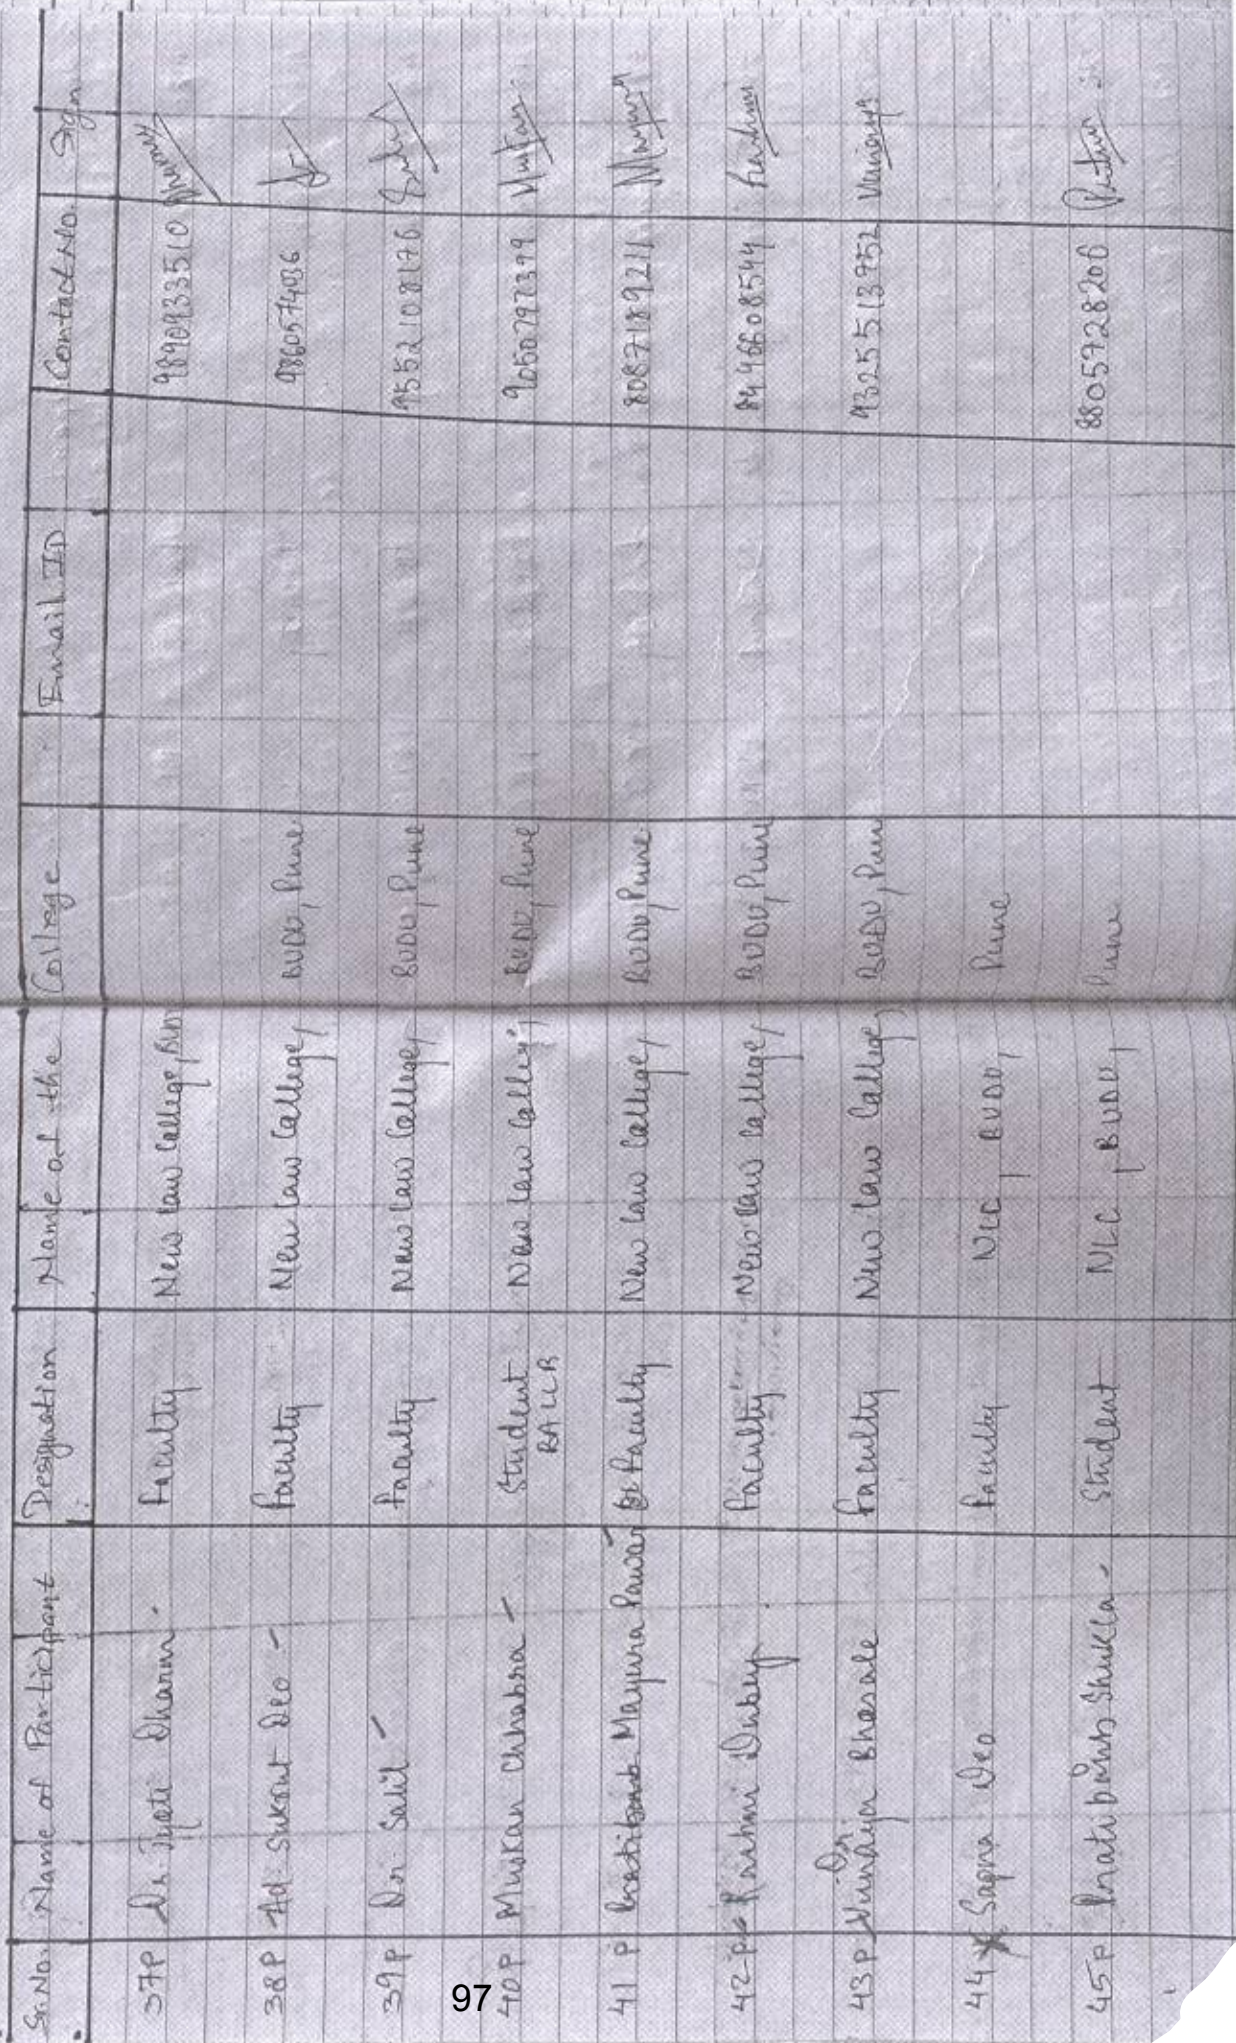 Sr.No. Name of Participant Designation Name of the College Email ID Contact No. Sign
37P Dr. Jyoti Dharm Faculty New Law College, 9890933510
38P Ad. Sukrut Deo Faculty New Law College, BVDU, Pune 9860574036
39P Dr. Salil Faculty New Law College, BVDU, Pune 9552108176
40P Muskan Chhabra Student New Law College, BVDU, Pune 9050797399 Muskan
BA LLB
41 P Mayura Pawar Faculty New Law College, BVDU, Pune 8087189211 Mayura
42 P Rashmi Dubey Faculty New Law College, BVDU, Pune 8446608544 Rashmi
43 P Dr. Vinaya Bhosale Faculty New Law College, BVDU, Pune 9325513752 Vinaya
44 Sapna Deo Faculty NLC, BVDU, Pune
45 P Pratibimb Shukla Student NLC, BVDU, Pune 8805928206
97